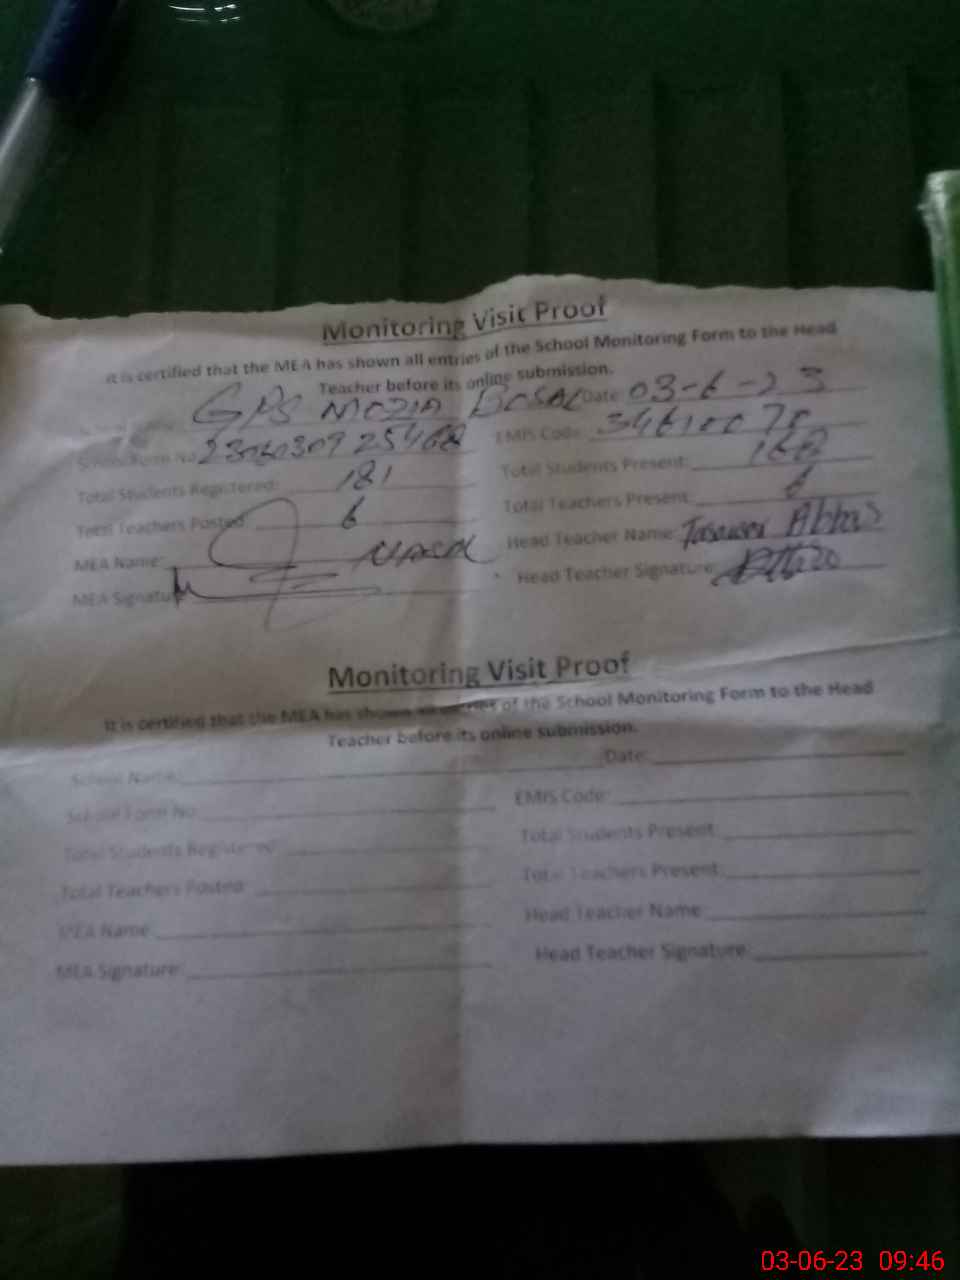 Monitoring Visit Proof
It is certified that the MEA has shown all entries of the School Monitoring Form to the Head
Teacher before its online submission.
GPS MOZIA BOSAL Date: 03-6-23
School Form No EMIS Code:
Total Students Registered: 181 Total Students Present: 168
Total Teachers Posted: 6 Total Teachers Present: 6
MEA Name: Head Teacher Name: Abbas
MEA Signature Head Teacher Signature:
Monitoring Visit Proof
It is certified that the MEA has shown all entries of the School Monitoring Form to the Head
Teacher before its online submission.
School Name: Date:
School Form No EMIS Code:
Total Students Registered Total Students Present:
Total Teachers Posted: Total Teachers Present:
MEA Name: Head Teacher Name:
MEA Signature: Head Teacher Signature:
03-06-23 09:46